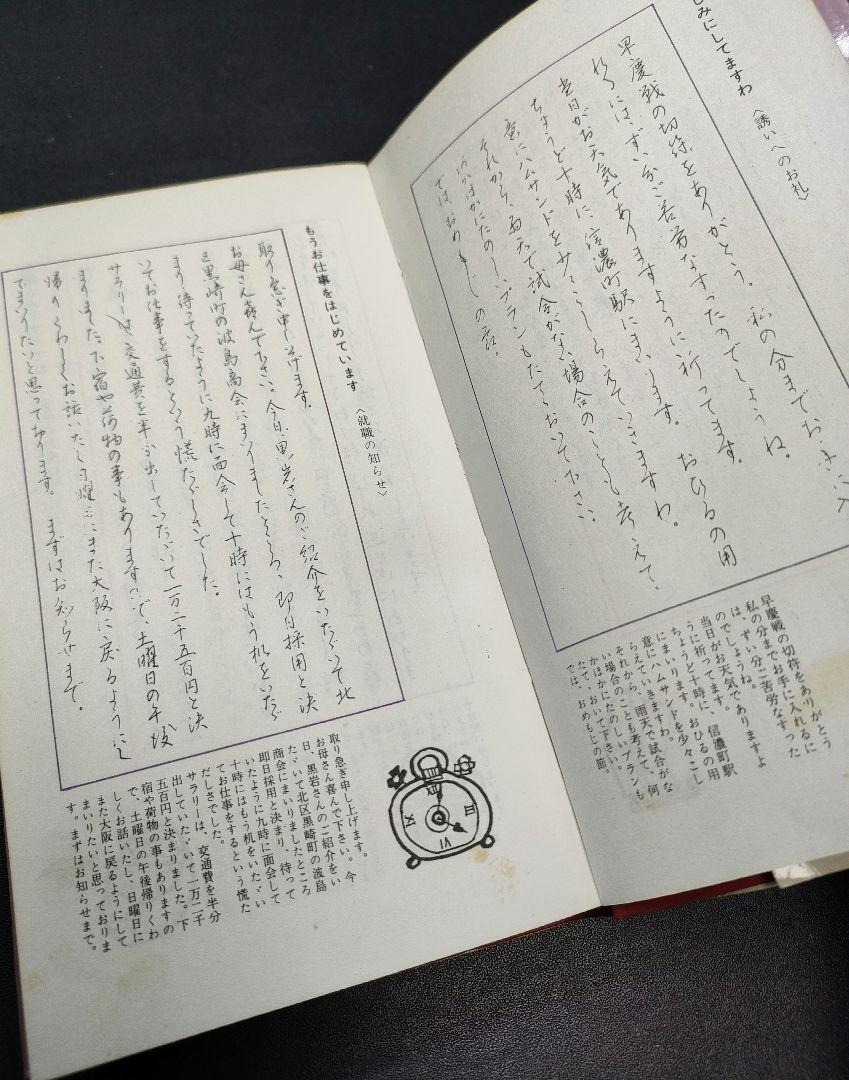 しみにしてますわ 〈誘いへのお礼〉
早慶戦の切符をありがとう。私の分までお手に入
れるには、ずい分ご苦労なすったのでしょうね。
当日がお天気でありますように祈ってます。
ちょうど十時に、信濃町駅にまいります。おひるの用
意にハムサンドを少々こしらえていきますわ。
それから、雨天で試合がない場合のことも考えて、
何かほかにたのしいプランもたてておいて下さい。
では、おめもじの節。
早慶戦の切符をありがとう
私の分までお手に入れるに
は、ずい分ご苦労なすった
のでしょうね。
当日がお天気でありますよ
うに祈ってます。
ちょうど十時に、信濃町駅
にまいります。おひるの用
意にハムサンドを少々こし
らえていきますわ。
それから、雨天で試合がな
い場合のことも考えて、何
かほかにたのしいプランも
たて、おいて下さい。
では、おめもじの節。
もうお仕事をはじめています 〈就職の知らせ〉
取り急ぎ申し上げます。
お母さん喜んで下さい。今日、黒岩さんのご紹介をいたゞいて北
区黒崎町の波島商会にまいりましたところ、即日採用と決
まり、待っていたように九時に面会して十時にはもう机をいたゞ
いてお仕事をするという慌だしさでした。
サラリーは、交通費を半分出していたゞいて一万二千五百円と決
まりました。下宿や荷物の事もありますので、土曜日の午後
帰りくわしくお話いたし日曜日にまた大阪に戻るようにし
てまいりたいと思っております。まずはお知らせまで。
XII
III
VI
IX
取り急ぎ申し上げます。
お母さん喜んで下さい。今
日、黒岩さんのご紹介をい
たゞいて北区黒崎町の波島
商会にまいりましたところ
即日採用と決まり、待って
いたように九時に面会して
十時にはもう机をいたゞい
てお仕事をするという慌た
だしさでした。
サラリーは、交通費を半分
出していたゞいて一万二千
五百円と決まりました。下
宿や荷物の事もありますの
で、土曜日の午後帰りくわ
しくお話いたし、日曜日に
また大阪に戻るようにして
まいりたいと思っておりま
す。まずはお知らせまで。